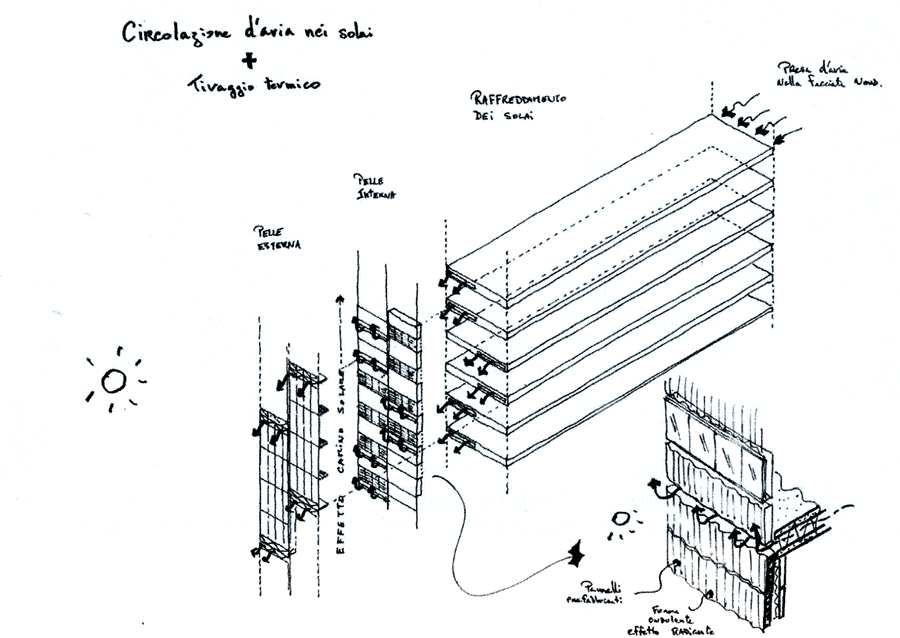 Circolazione d'aria nei solai
+
Tiraggio termico
Presa d'aria
nella facciata Nord.
RAFFREDDAMENTO
DEI SOLAI
PELLE
INTERNA
PELLE
ESTERNA
EFFETTO CAMINO SOLARE
Pannelli
prefabbricati
Forma
ondulante
effetto RADiante